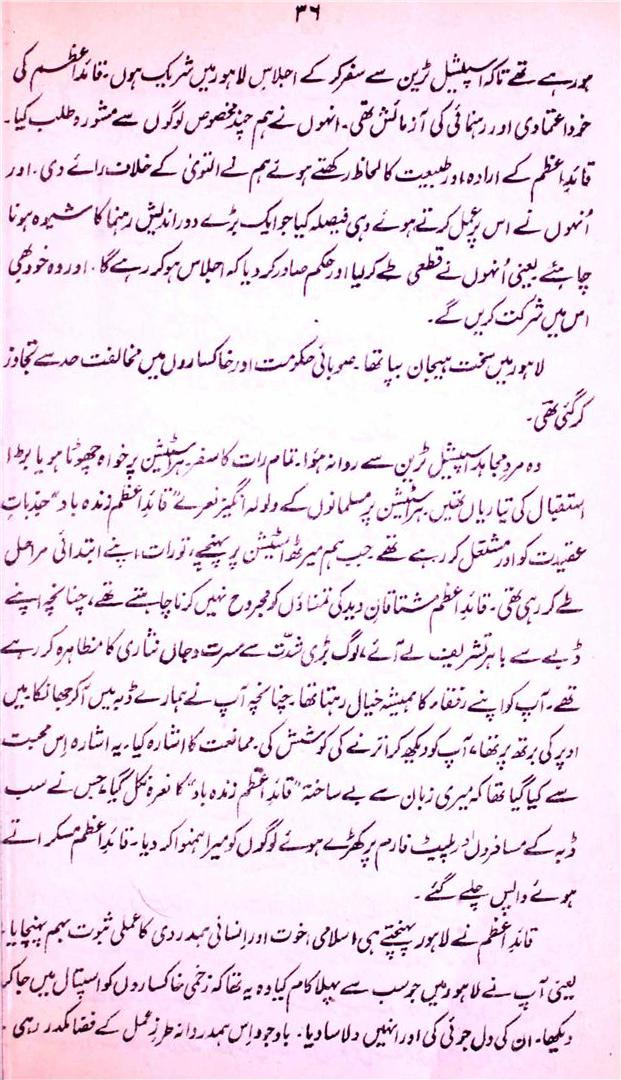 ۳۶
ہورہے تھے تاکہ اسپیشل ٹرین سے سفر کر کے اجلاس لاہور میں شریک ہوں۔ قائد اعظم کی
خود اعتمادی اور رہنمائی کی آزمائش تھی۔ انہوں نے ہم چند مخصوص لوگوں سے مشورہ طلب کیا۔
قائدِ اعظم کے ارادہ اور طبیعت کا لحاظ رکھتے ہوئے ہم نے التویٰ کے خلاف رائے دی۔ اور
اُنہوں نے اس پر عمل کرتے ہوئے وہی فیصلہ کیا جو ایک بڑے دور اندیش رہنما کا شیوہ ہونا
چاہئے یعنی اُنہوں نے قطعی طے کر لیا اور حکم صادر کر دیا کہ اجلاس ہو کر رہے گا۔ اور وہ خود بھی
اس میں شرکت کریں گے۔
لاہور میں سخت ہیجان بپا تھا۔ صوبائی حکومت اور خاکساروں میں مخالفت حد سے تجاوز
کر گئی تھی۔
وہ مردِ مجاہد اسپیشل ٹرین سے روانہ ہؤا۔ تمام رات کا سفر۔ ہر اسٹیشن پر خواہ چھوٹا ہو یا بڑا
استقبال کی تیاریاں تھیں۔ ہر سٹیشن پر مسلمانوں کے ولولہ انگیز نعرے ”قائد اعظم زندہ باد“ جذباتِ
عقیدت کو اور مشتعل کر رہے تھے۔ جب ہم میرٹھ اسٹیشن پر پہنچے، تو رات اپنے ابتدائی مراحل
طے کر رہی تھی۔ قائدِ اعظم مشتاقانِ دید کی تمناؤں کو مجروح نہیں کرنا چاہتے تھے، چنانچہ اپنے
ڈبے سے باہر تشریف لے آئے، لوگ بڑی شدّت سے مسرت و جاں نثاری کا مظاہرہ کر رہے
تھے۔ آپ کو اپنے رفقاء کا ہمیشہ خیال رہتا تھا۔ چنانچہ آپ نے ہمارے ڈبہ میں آکر جھانکا۔ میں
اوپر کی برتھ پر تھا، آپ کو دیکھ کر اترنے کی کوشش کی۔ ممانعت کا اشارہ کیا۔ یہ اشارہ اِس محبت
سے کیا گیا تھا کہ میری زبان سے بے ساختہ ”قائدِ اعظم زندہ باد“ کا نعرہ نکل گیا، جس نے سب
ڈبہ کے مسافروں اور پلیٹ فارم پر کھڑے ہوئے لوگوں کو میرا ہمنوا کر دیا۔ قائدِ اعظم مسکراتے
ہوئے واپس چلے گئے۔
قائدِ اعظم نے لاہور پہنچتے ہی اسلامی اخوت اور انسانی ہمدردی کا عملی ثبوت بہم پہنچایا۔
یعنی آپ نے لاہور میں جو سب سے پہلا کام کیا وہ یہ تھا کہ زخمی خاکساروں کو اسپتال میں جا کر
دیکھا۔ ان کی دل جوئی کی اور انہیں دلاسا دیا۔ باوجود اِس ہمدردانہ طرزِ عمل کے فضا مکدر رہی۔